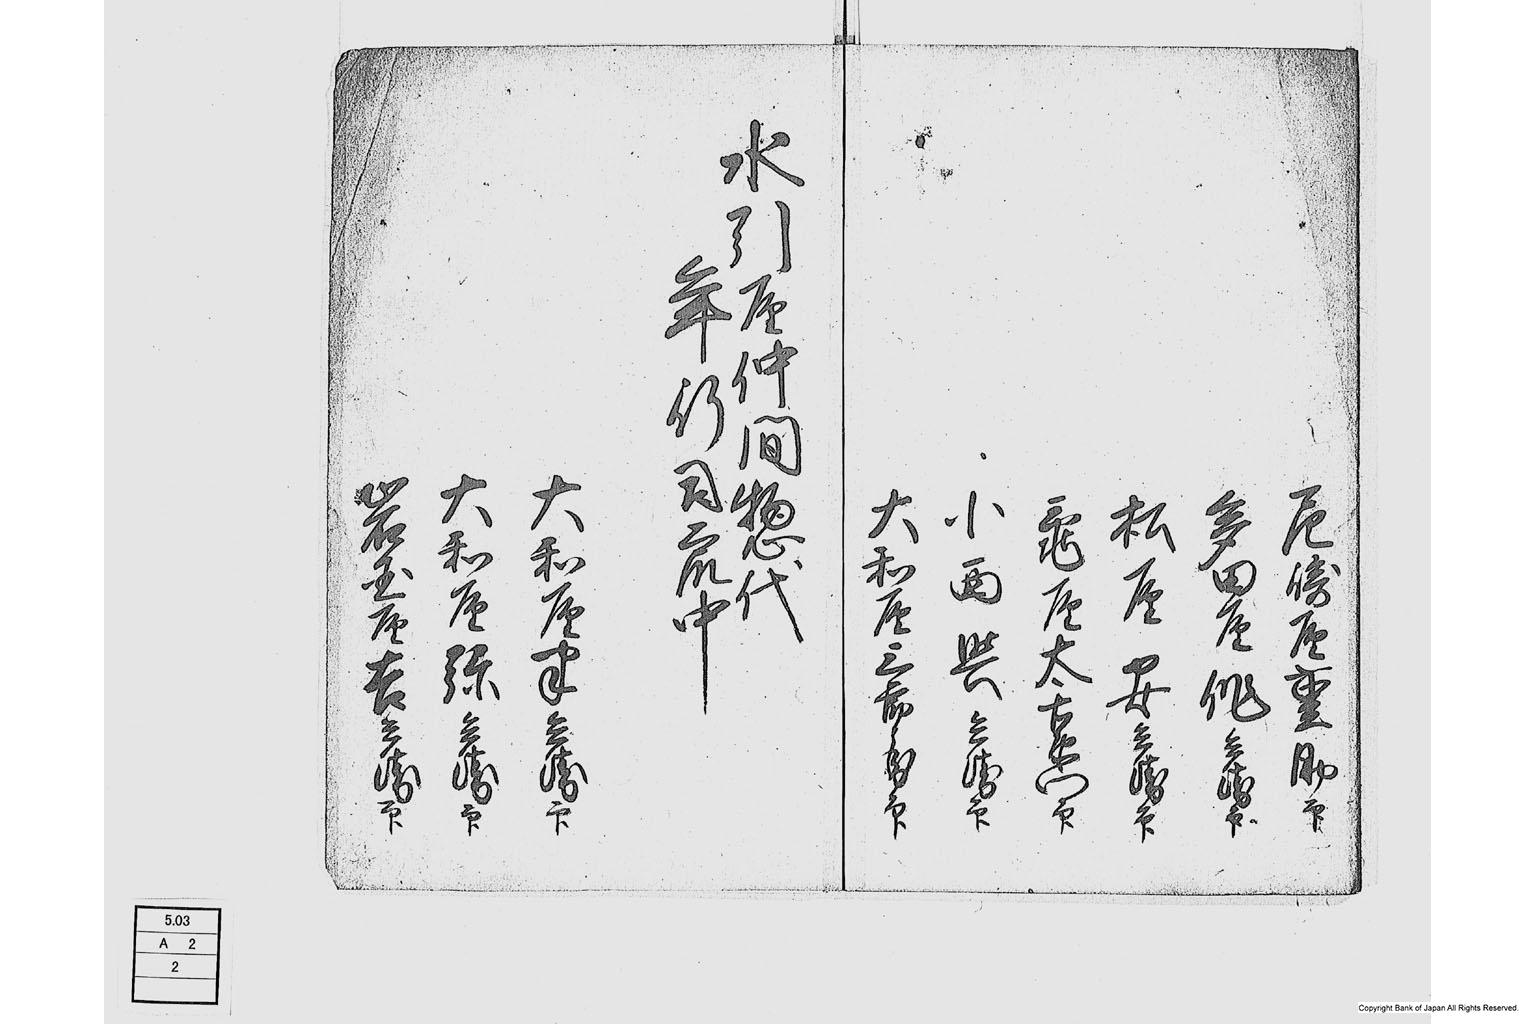 尼崎屋重助印
多田屋佐兵衛印
松屋安兵衛印
亀屋太右衛門印
小西與兵衛印
大和屋三郎兵衛印
水引屋仲間惣代
年行司衆中
大和屋宇兵衛印
大和屋弥兵衛印
岩玉屋吉兵衛印
5.03
A 2
2
Copyright Bank of Japan All Rights Reserved.